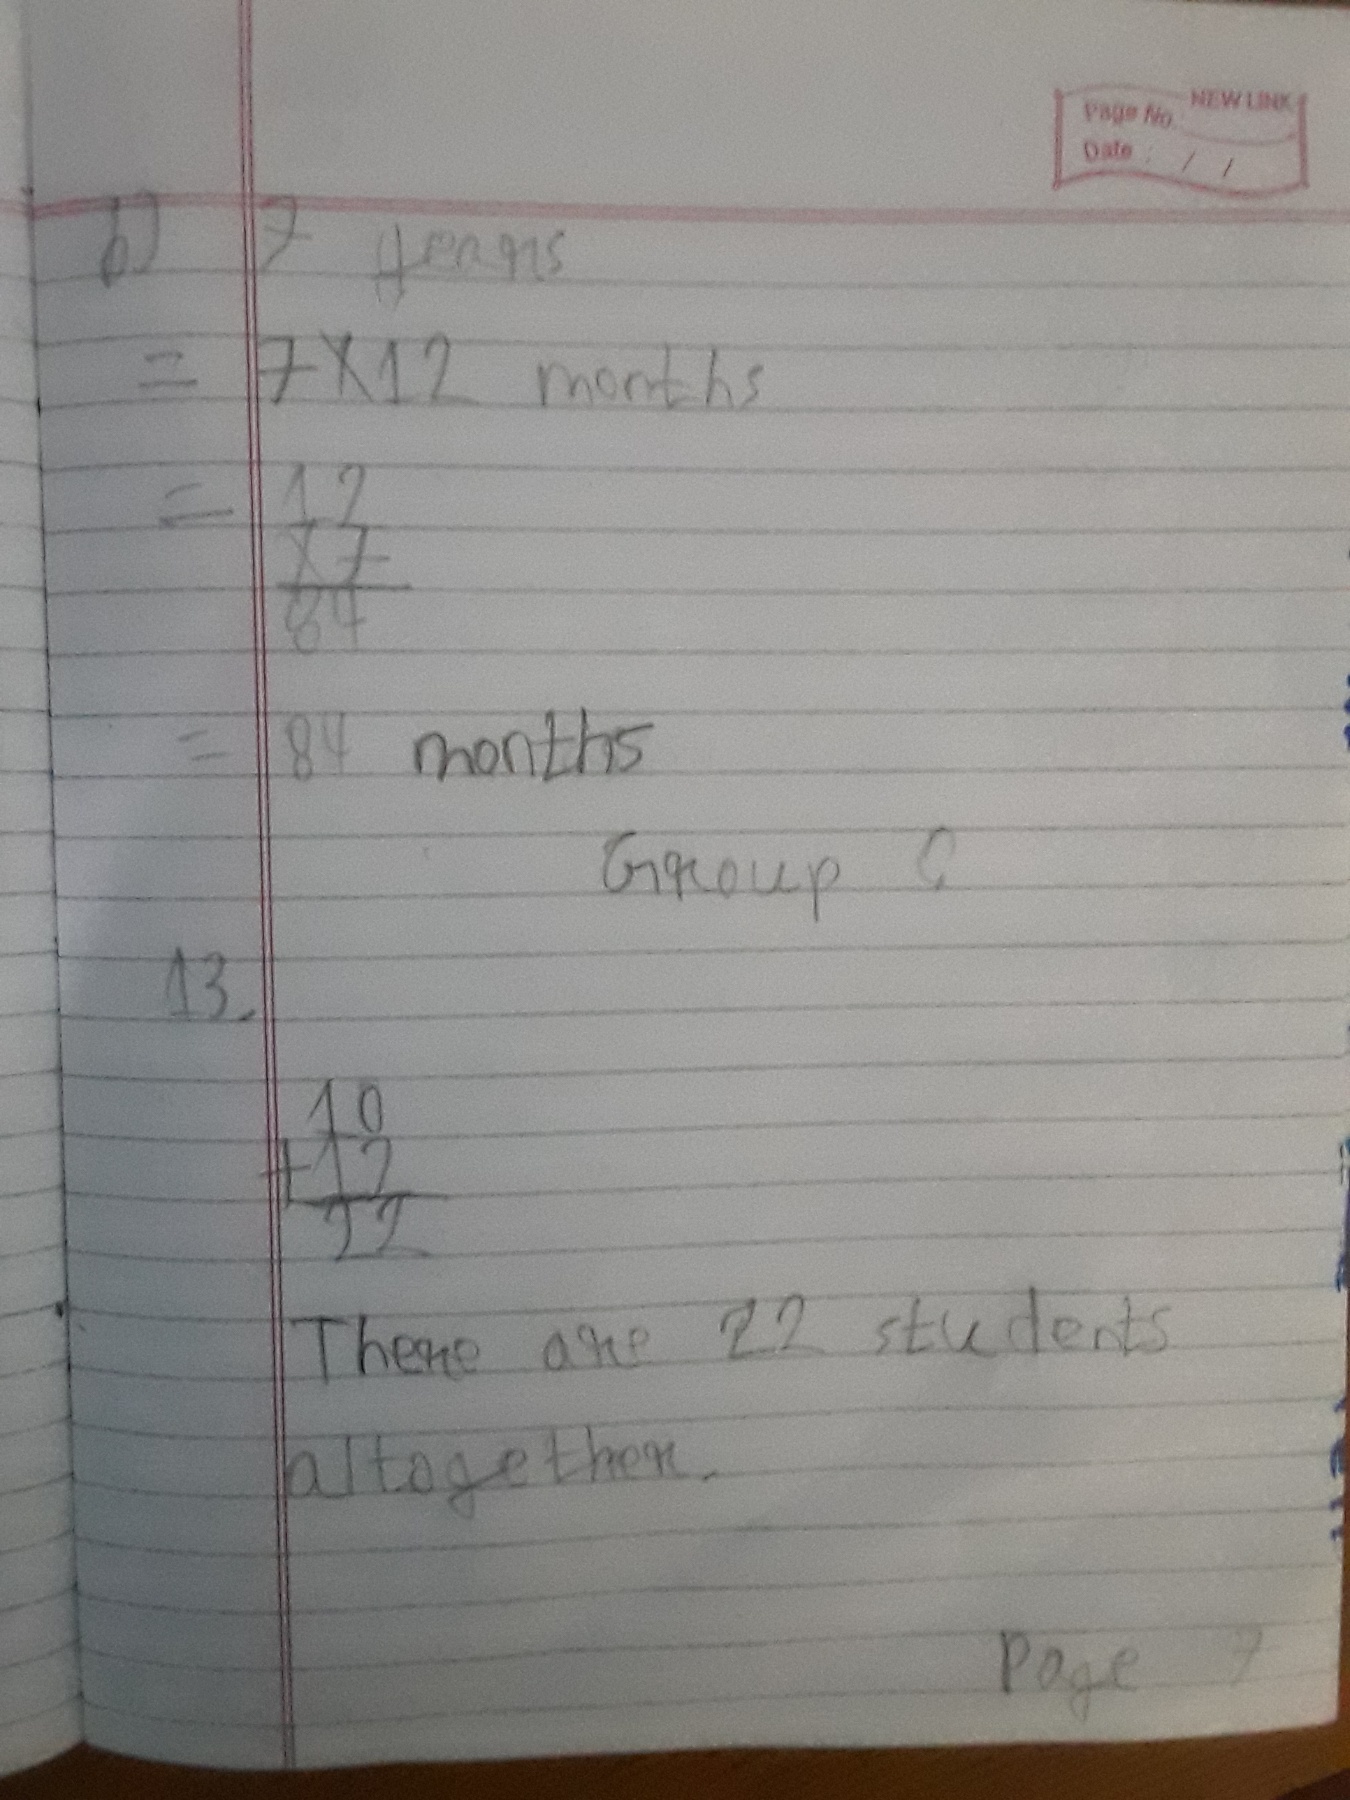 NEW LINK
Page No.
Date : / /
b) 7 years
= 7X12 months
= 12
X7
84
= 84 months
Group C
13.
10
+12
22
There are 22 students
altogether.
Page 7